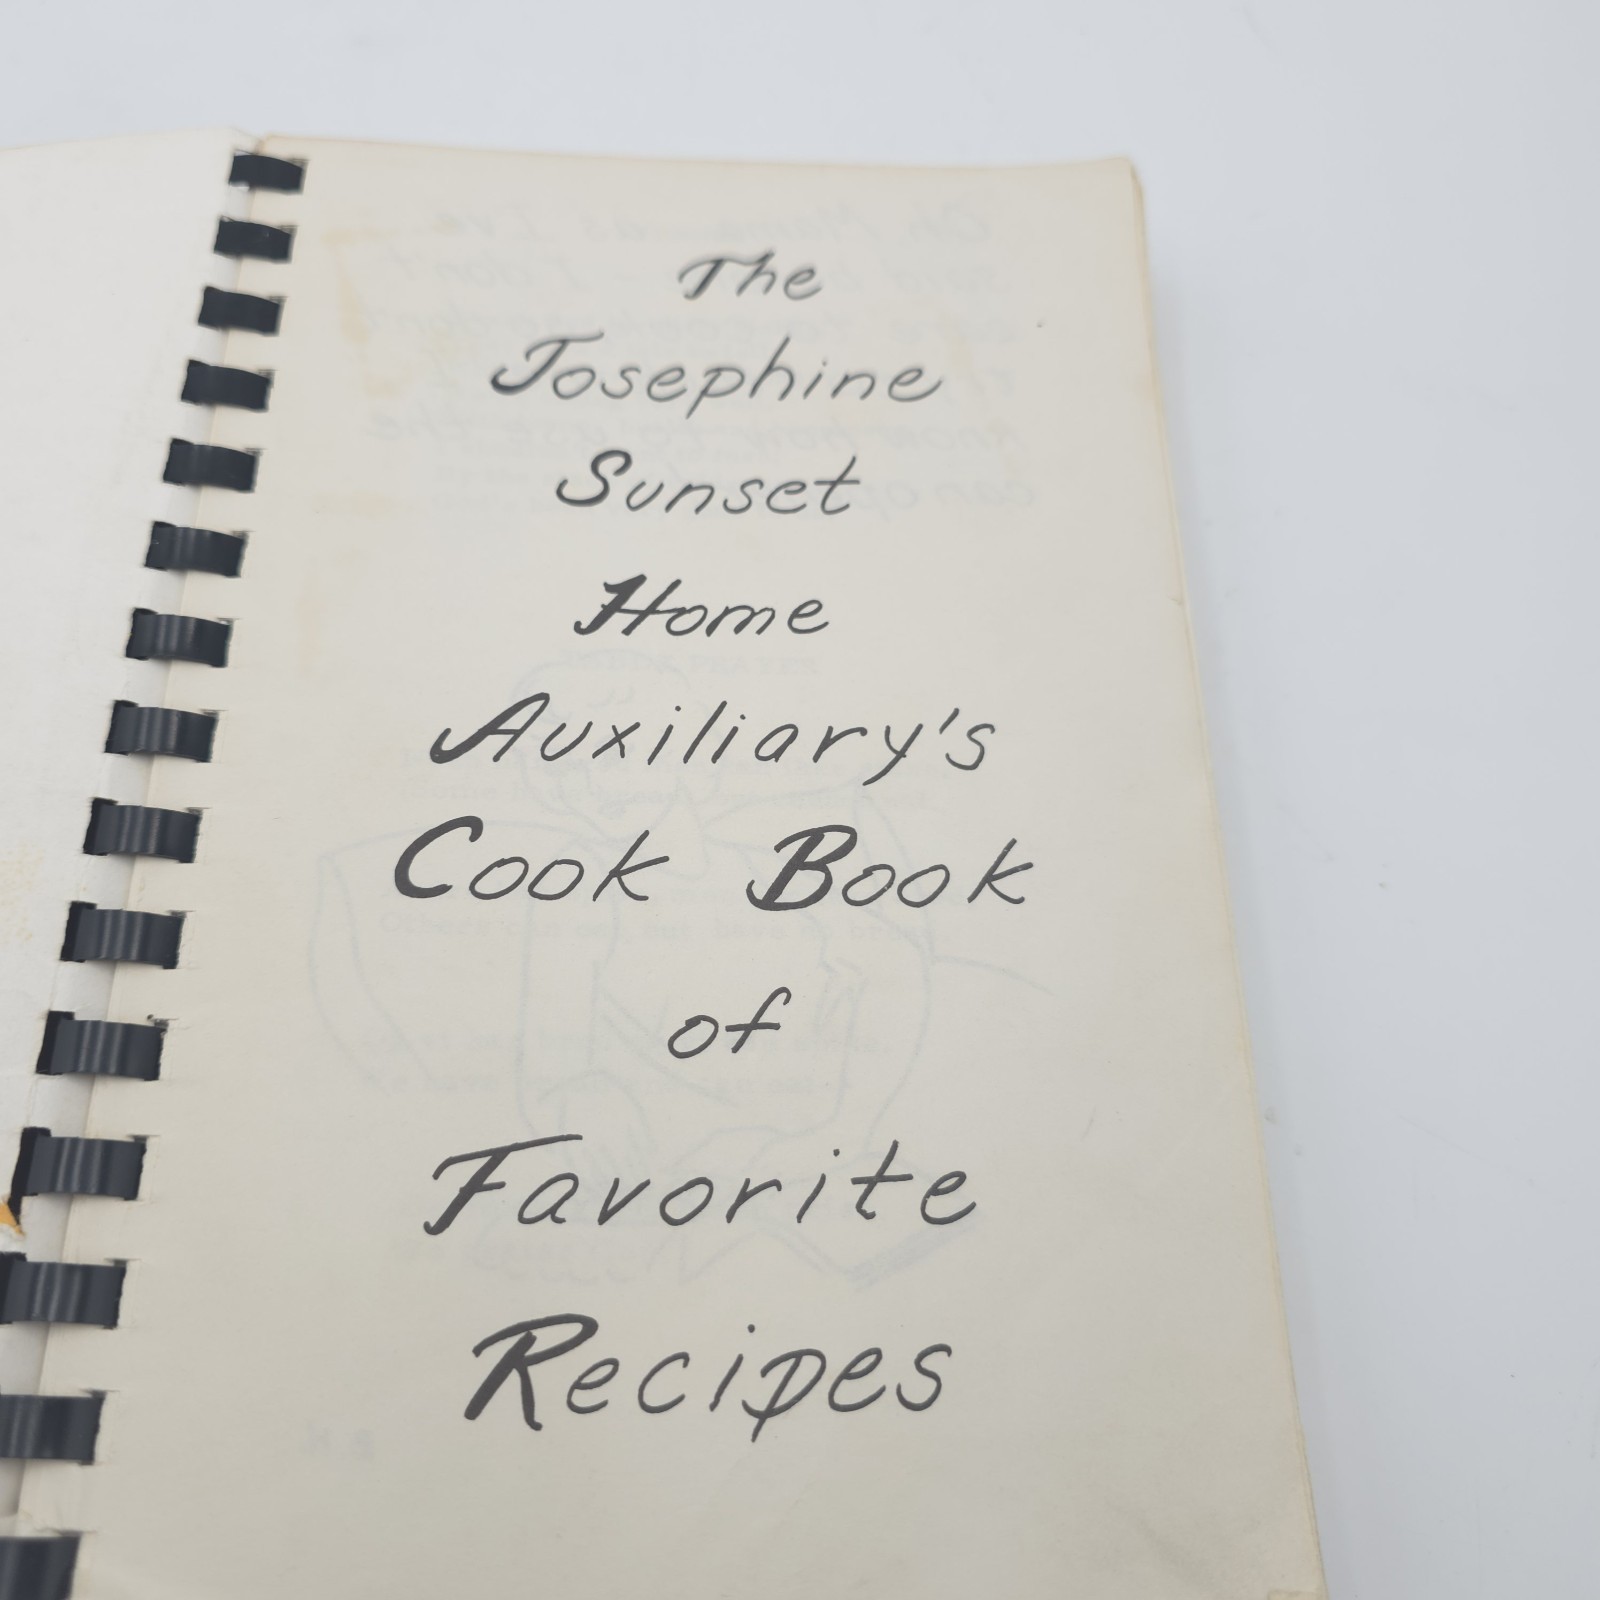 The
Josephine
Sunset
Home
Auxiliary's
Cook Book
of
Favorite
Recipes